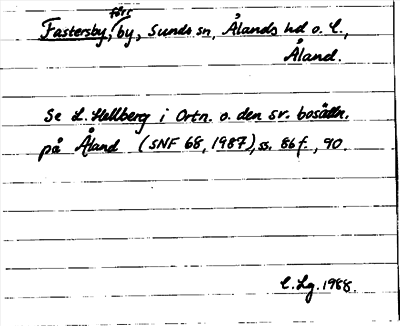 Fastersby, förr by, Sunds sn, Ålands hd o. l.,
Åland.
Se L. Hellberg i Ortn. o. den sv. bosättn.
på Åland (SNF 68, 1987), ss. 86 f., 90.
C. Lg. 1988.